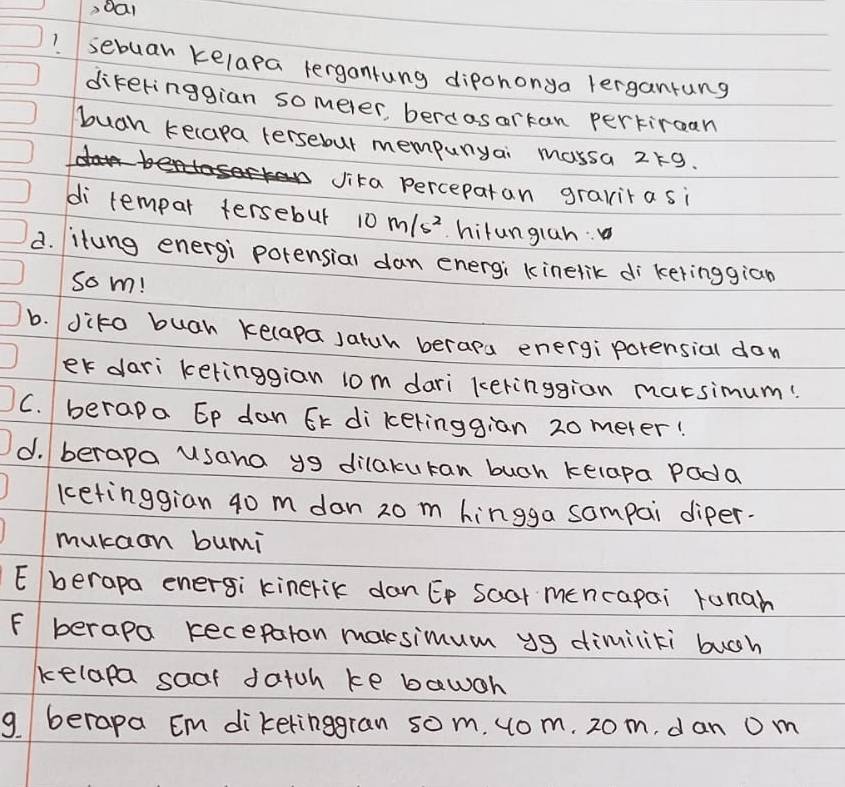 soal
1. sebuah kelapa tergantung dipohonya tergantung
diketinggian 50 meter, berdasarkan perkiraan
buah kelapa tersebut mempunyai massa 2 kg.
dan berdasarkan Jika percepatan gravitasi
di tempat tersebut 10 m/s². hitunglah :
a. itung energi potensial dan energi kinetik di ketinggian
50 m!
b. Jika buah kelapa jatuh berapa energi potensial dan
ek dari ketinggian 10 m dari ketinggian maksimum!
C. berapa Ep dan Ek di ketinggian 20 meter!
d. berapa usaha yg dilakukan buah kelapa pada
ketinggian 40 m dan 20 m hingga sampai diper-
mukaan bumi
E berapa energi kinetik dan Ep saat mencapai tanah
F berapa kecepatan maksimum yg dimiliki buah
kelapa saat jatuh ke bawah
g. berapa Em diketinggian 50 m. 40 m. 20 m. dan 0 m